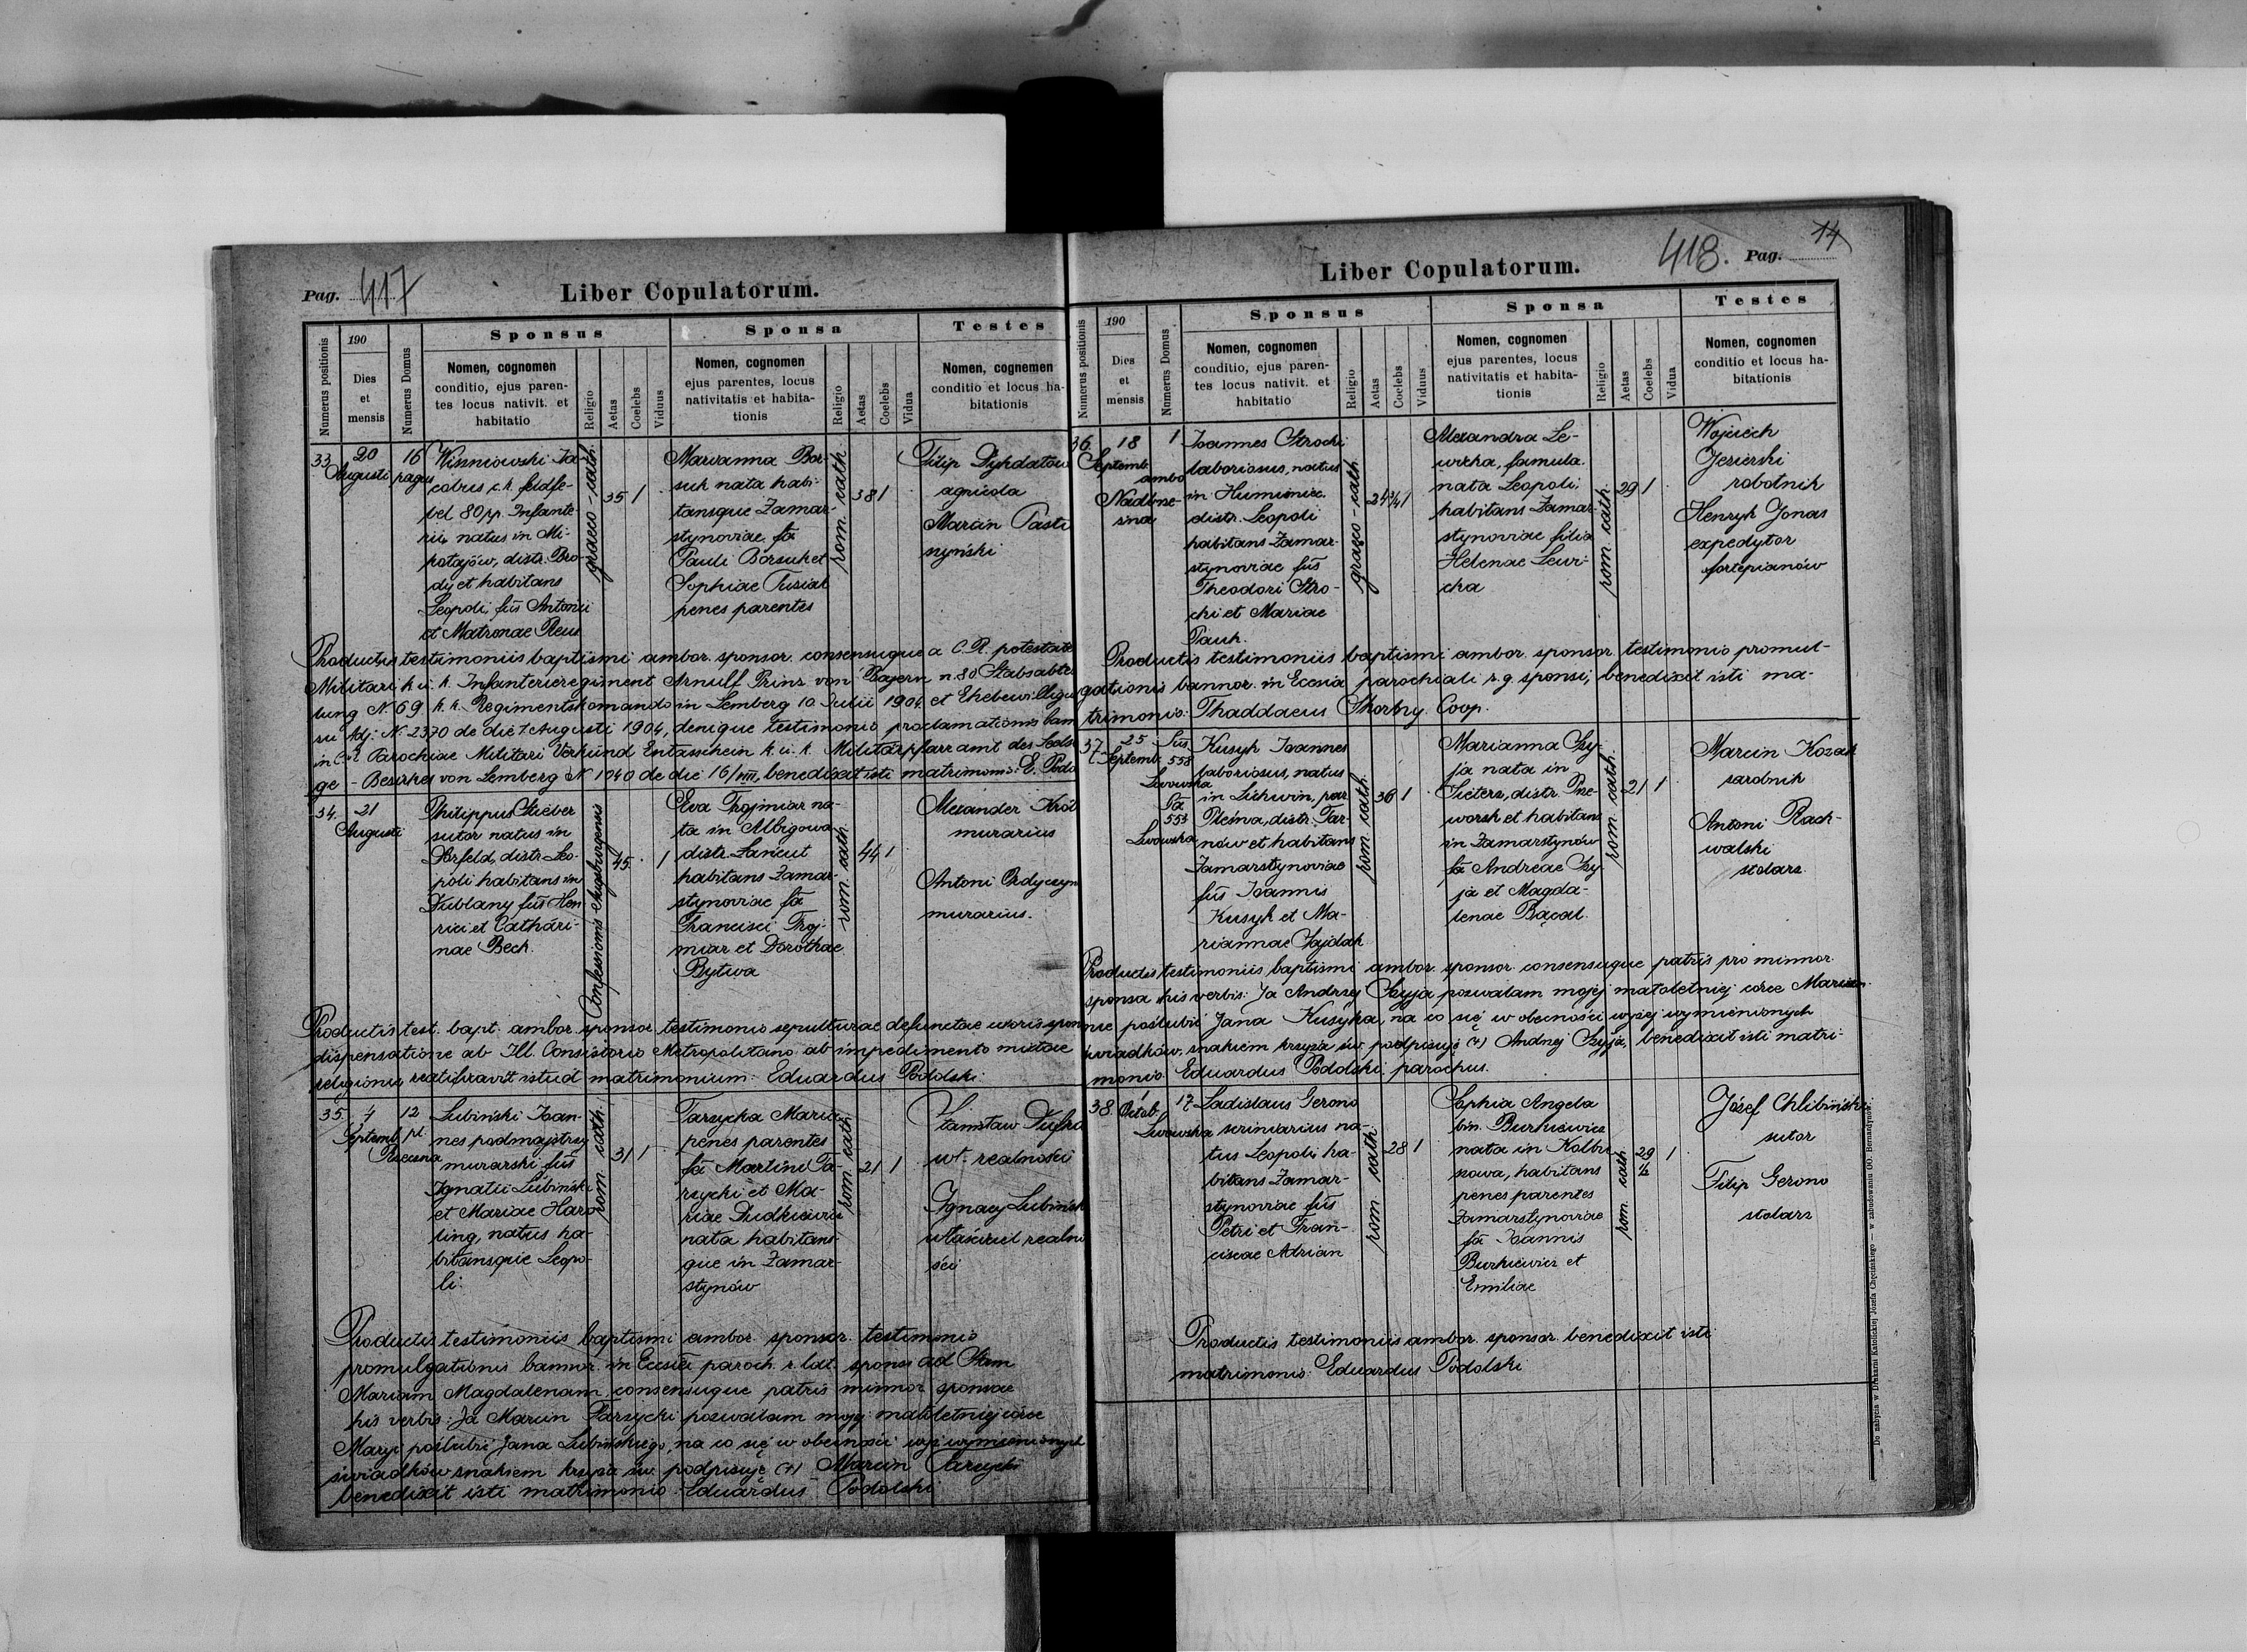 Pag. 417
Liber Copulatorum.
Numerus positionis
190
Dies
et
mensis
Numerus Domus
Sponsus
Nomen, cognomen
conditio, ejus paren-
tes locus nativit. et
habitatio
Religio
Aetas
Coelebs
Viduus
Sponsa
Nomen, cognomen
ejus parentes, locus
nativitatis et habita-
tionis
Religio
Aetas
Coelebs
Vidua
Testes
Nomen, cognemen
conditio et locus ha-
bitationis
33
20
Augusti
16
pagus
Wiśniowski Ja-
cobus c.k. feldfe-
bel 80 pp. Infante-
rie natus in Mi-
kołajów, distr. Bro-
dy et habitans
Leopoli, fus Antonii
et Matronae Reus
graeco-cath.
35
1
Maryanna Bor-
suk nata habi-
tansque Zamar-
stynoviae fa
Pauli Borsuk et
Sophiae Tusiak
penes parentes
rom. cath.
38
1
Filip Dyhdałow
agricola
Marcin
Productis testimoniis baptismi ambor. sponsor. consensuque a C.R. potestate
Militari k. u. k. Infanterieregiment Arnulf Prinz von Bayern n. 80 Stabsabtei
lung N 69 k.k. Regimentskomando in Lemberg 10 Julii 1904 et Ehebewilligu
Adj: N. 2370 de die 7 Augusti 1904, denique testimonio proclamationis ban
in C.R. Parochiae Militari Verkünd Entasschein k. u. k. Militärpfarramt des
ge - Bezirkes von Lemberg N 1040 de die 16/VIII, benedixit isti matrimonio: E. Podo
34.
21
Augusti
Philippus Stieber
sutor natus in
Dorfeld, distr. Leo-
poli habitans in
Dublany fus Hen
rici et Cathari-
nae Bech.
Confessionis Augsburgensis
45.
1
Eva Trojniar na-
ta in Albigowa
distr. Łańcut
habitans Zamar-
stynoviae fa
Francisci Troj-
niar et Dorothae
Bytwa
rom. cath.
44
1
Alexander Król
murarius
Antoni
murarius.
Productis test. bapt. ambor. sponsor. testimonio sepulturae defunctae uxoris spon
dispensatione ab Ill. Consistorio Metropolitano ab impedimento mixtae
religionis ratificavit istud matrimonium: Eduardus Podolski.
35
4
Septemb.
12
pl.
Lubiński Joan-
nes podmajstrzy
murarski fus
Ignatii Lubiński
et Mariae Har
ling, natus ha-
bitansque Leopo-
li.
rom. cath.
31
1
Tarzycka Maria
penes parentes
fa Martini Ta-
rzycki et Ma-
riae Dudkiewicz
nata habitans
que in Zamar-
stynów
rom. cath.
21
1
Stanisław
wł. realności
Ignacy Lubińsk
właściciel realno
ści
Productis testimoniis baptismi ambor. sponsor. testimonio
promulgationis bannor. in Ecclesia paroch. r. lat. sponsi ad Stam
Mariam Magdalenam, consensuque patris minnor. sponsae
his verbis: Ja Marcin Tarzycki pozwalam mojej małoletniej córce
Maryi poślubić Jana Lubińskiego, na co się w obecności wyż wymienionych
świadków znakiem krzyża św. podpisuję (+) Marcin Tarzycki
benedixit isti matrimonio: Eduardus Podolski
418. Pag. 14
Liber Copulatorum.
Numerus positionis
190
Dies
et
mensis
Numerus Domus
Sponsus
Nomen, cognomen
conditio, ejus paren-
tes locus nativit. et
habitatio
Religio
Aetas
Coelebs
Viduus
Sponsa
Nomen, cognomen
ejus parentes, locus
nativitatis et habita-
tionis
Religio
Aetas
Coelebs
Vidua
Testes
Nomen, cognomen
conditio et locus ha-
bitationis
36
18
Septemb.
1
ambo
Joannes Strocki
laboriosus, natus
in
distr. Leopoli
habitans Zamar-
stynoviae fus
Theodori Stro-
cki et Mariae
Pauk.
graeco-cath
24
1
Alexandra Le-
wicka, famula.
nata Leopoli,
habitans Zamar-
stynoviae filia
Helenae Lewi-
cka
rom. cath.
29
1
Wojciech
Jezierski
robotnik
Henryk Jonas
expedytor
fortepianów
Productis testimoniis baptismi ambor. sponsor. testimonio promul-
gationis bannor. in Ecesia parochiali r.g. sponsi, benedixit isti ma-
trimonio: Thaddaeus Skorbny Coop.
37.
25
Septemb.
Sus.
558
Lwowska
Sa
553
Lwowska
Kusyk Joannes
laboriosus, natus
in Lichwin, par.
Pleśna, distr. Tar-
nów et habitans
Zamarstynoviae
fus Joannis
Kusyk et Ma-
riannae Sajdak
rom. cath.
36
1
Marianna Szy-
ja nata in
Sietesz, distr. Prze-
worsk et habitans
in Zamarstynów
fa Andreae Szy-
ja et Magda-
lenae Bącal.
rom. cath.
21
1
Marcin Kozak
Antoni Rach-
walski
stolarz
Productis testimoniis baptismi ambor. sponsor. consensuque patris pro minnor.
sponsa his verbis: Ja Andrzej Szyja pozwalam mojej małoletniej córce Marian-
nie poślubić Jana Kusyka, na co się w obecności wyżej wymienionych
świadków, znakiem krzyża św. podpisuję (+) Andrzej Szyja, benedixit isti matri-
monio. Eduardus Podolski, parochus.
38.
1
Octob.
17
Lwowska
Ladislaus Gerono
scriniarius na-
tus Leopoli ha-
bitans Zamar-
stynoviae fus
Petri et Fran-
ciscae Adrian
rom. cath.
28
1
Sophia Angela
bin. Burkiewicz
nata in Kolbu-
szowa, habitans
penes parentes
Zamarstynoviae
fa Joannis
Burkiewicz et
Emiliae
rom. cath.
29
1
Józef Chlibiński
sutor
Filip Gerono
stolarz
Productis testimoniis ambor. sponsor. benedixit isti
matrimonio: Eduardus Podolski
Do nabycia w Drukarni Katolickiej Józefa Chęcińskiego — w zabudowaniu OO. Bernardynów.